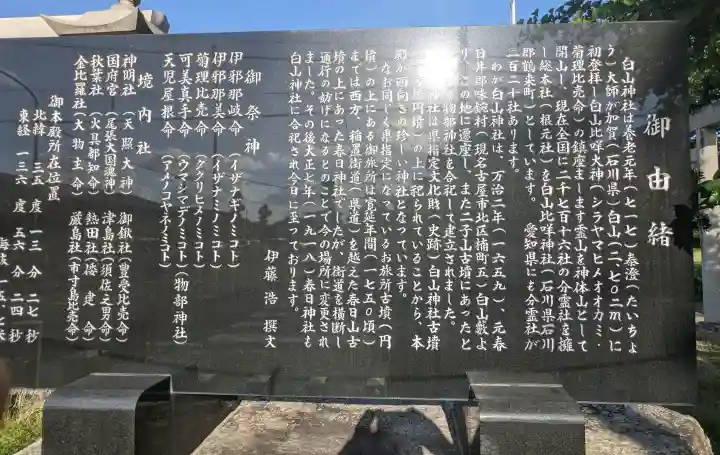 御由緒
白山神社は養老元年(七一七)泰澄(たいちょ
う)大師が加賀(石川県)白山(二、七〇二m)に
初登拝し白山比咩大神(シラヤマヒメオオカミ・
菊理比売命)の鎮座まします霊山を神体山として
開山し、現在全国に二千七百十六社の分霊社を擁
し総本社(根元社)を白山比咩神社(石川県石川
郡鶴来町)としています。 愛知県にも分霊社が
三百二十社あります。
わが白山神社は、万治二年(一六五九)、元春
日井郡味鋺村(現名古屋市北区楠町五)白山藪よ
り、この地に遷座し、また二子山古墳にあったと
物部神社を合祀して建立されました。
神社は県指定文化財(史跡)白山神社古墳
円墳)の上に祀られていることから、本
殿が西向きの珍しい神社となっています。
なお同じく県指定になっているお旅所古墳(円
墳)の上にある御旅所は寛延年間(一七五〇頃)
までは西方、稲置街道(県道)を越えた春日山古
墳の上にあった春日神社でしたが、街道を横断し
通行の妨げになるとのことで今の場所に変更され
ました。その後大正七年(一九一八)春日神社も
白山神社に合祀され今日に至っております。
伊藤浩 撰文
御祭神
伊邪那岐命(イザナギノミコト)
伊邪那美命(イザナミノミコト)
菊理比売命(ククリヒメノミコト)
可美真手命(ウマシマデノミコト)(物部神社)
天児屋根命(アメノコヤネノミコト)
境内社
神明社(天照大神) 御鍬社(豊受比売命)
国府宮(尾張大国魂神) 津島社(須佐之男命)
秋葉社(火具都知命) 熱田社(倭建命)
金比羅社(大物主命) 厳島社(市寸島比売命)
御本殿所在位置
北緯 三五度 一三分 二七秒
東経 一三六度 五六分 二四秒
海抜 一五、